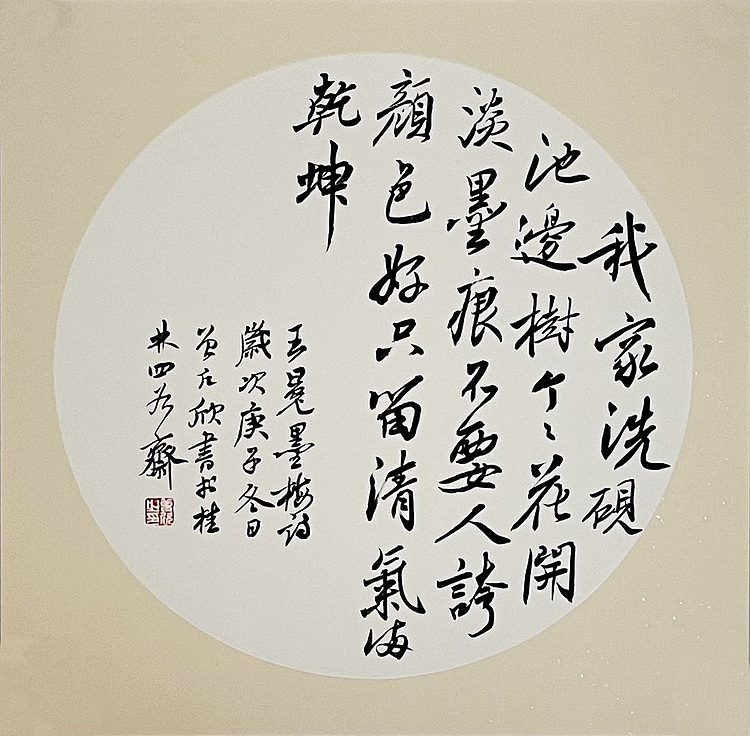 我家洗硯
池邊樹个々花開
淡墨痕不要人誇
顔色好只留清氣滿
乾坤
王冕墨梅詩
歲次庚子冬日
欣書於桂
林四齋